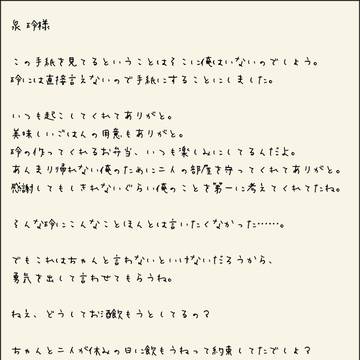 泉 玲様
この手紙を見てるということはそこに俺はいないのでしょう。
玲には直接言えないので手紙にすることにしました。
いつも起こしてくれてありがと。
美味しいごはんの用意もありがと。
玲の作ってくれるお弁当、いつも楽しみにしてるんだよ。
あんまり帰れない俺のために二人の部屋を守ってくれてありがと。
感謝してもしきれないぐらい俺のことを第一に考えてくれてたね。
そんな玲にこんなことほんとは言いたくなかった……。
でもこれはちゃんと言わないといけないだろうから、
勇気を出して言わせてもらうね。
ねえ、どうしてお酒飲もうとしてるの？
ちゃんと二人が休みの日に飲もうねって約束してたでしょ？